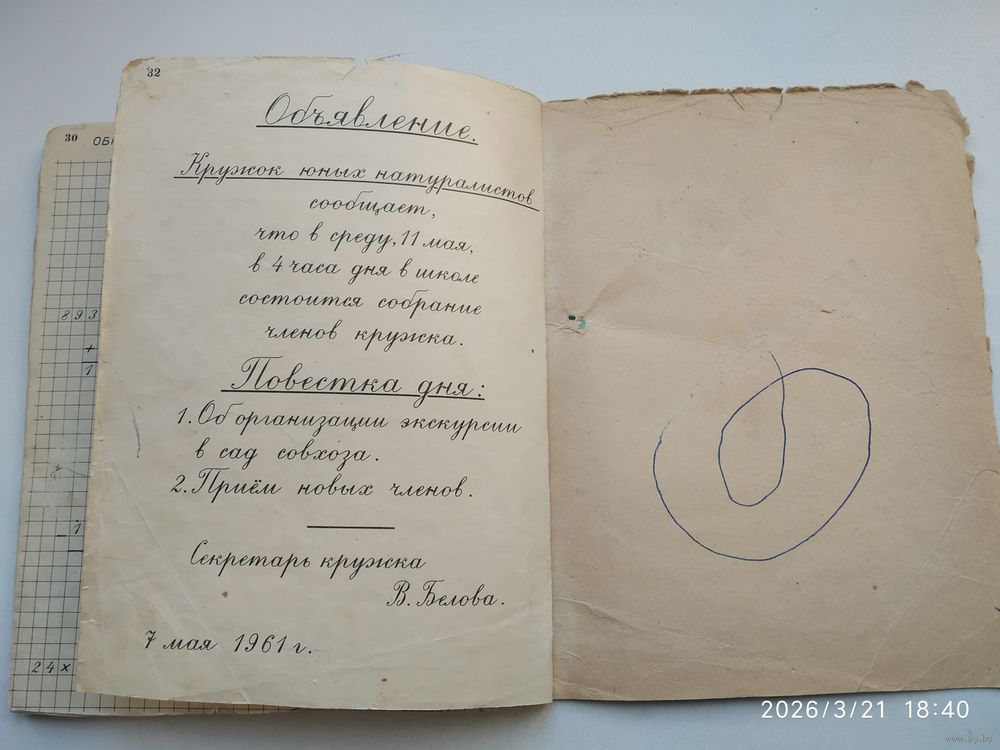 30
ОБ
8 9 3
+
1
- 1
24 х
32
Объявление.
Кружок юных натуралистов
сообщает,
что в среду, 11 мая,
в 4 часа дня в школе
состоится собрание
членов кружка.
Повестка дня:
1. Об организации экскурсии
в сад совхоза.
2. Приём новых членов.
Секретарь кружка
В. Белова.
7 мая 1961 г.
2026/3/21 18:40
www.ay.by